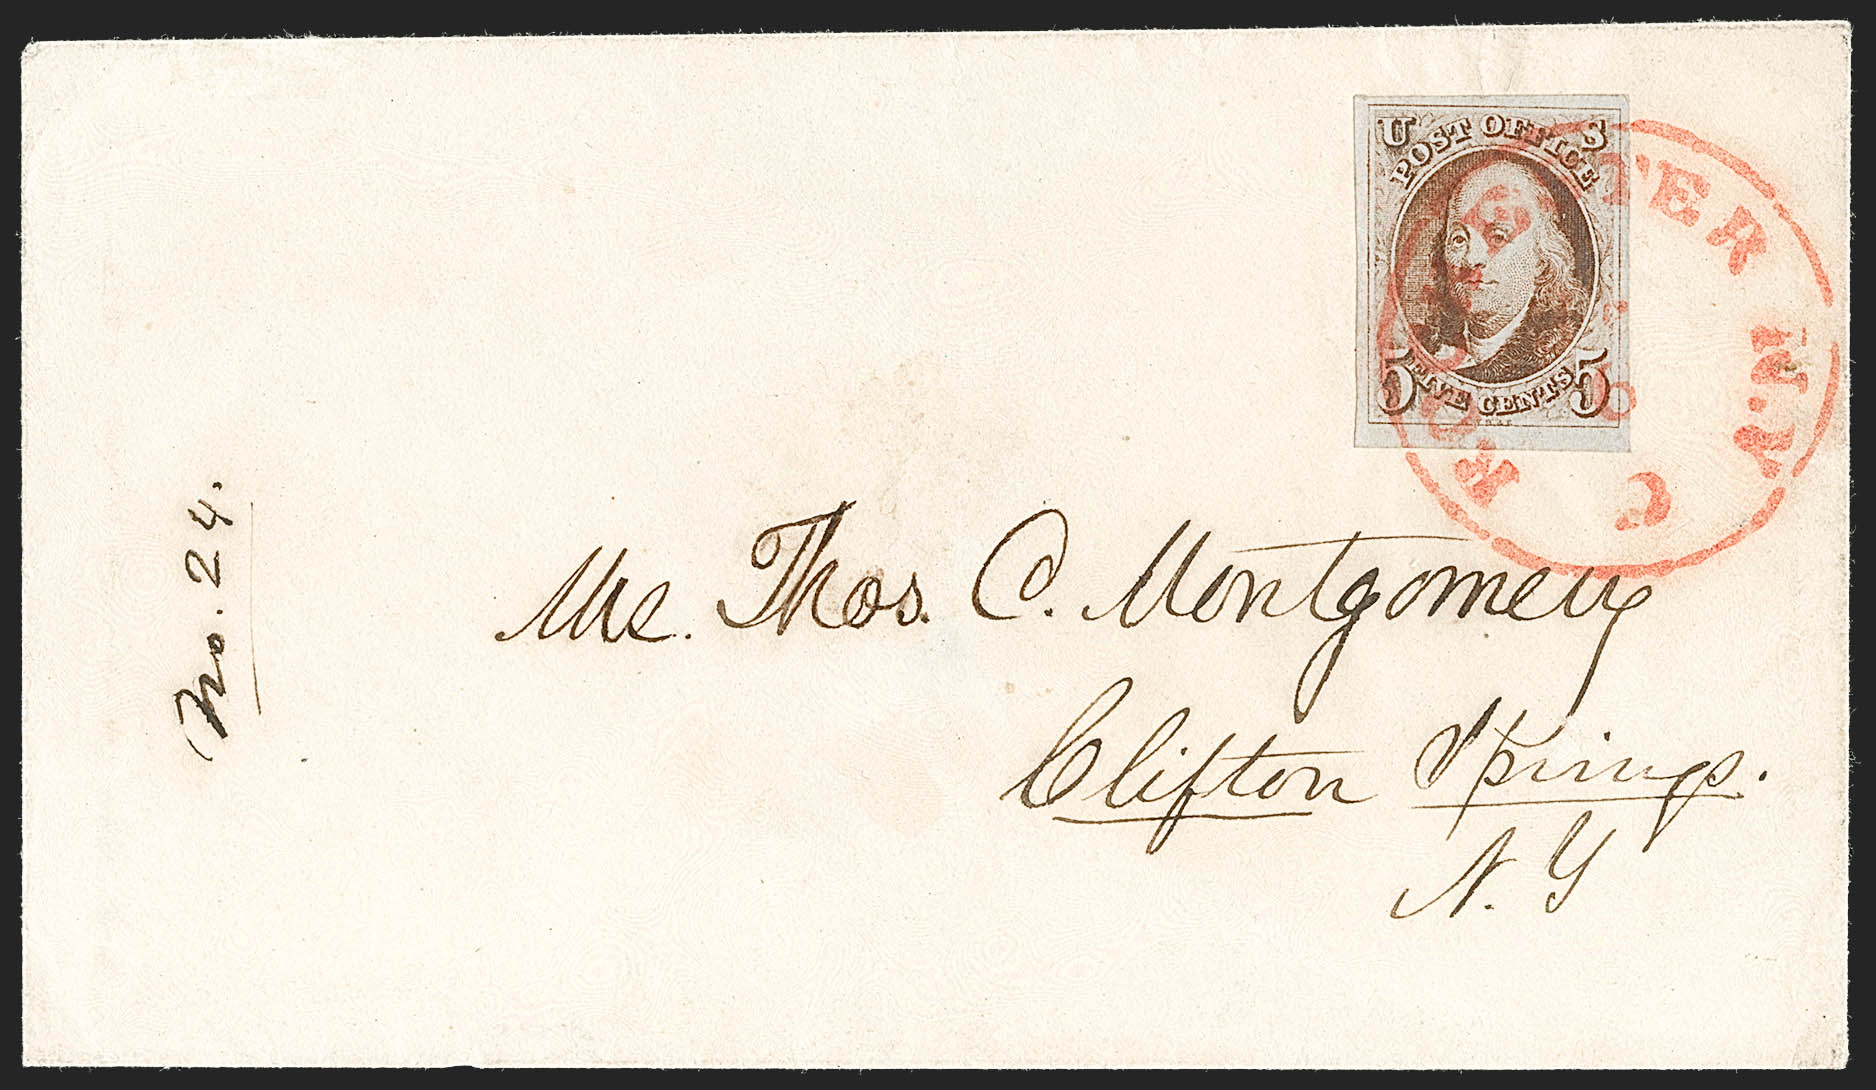 U S
POST OFFICE
5 FIVE CENTS 5
ROCHESTER N.Y.
No. 24.
Mrs. Thos. C. Montgomery
Clifton Springs.
N. Y